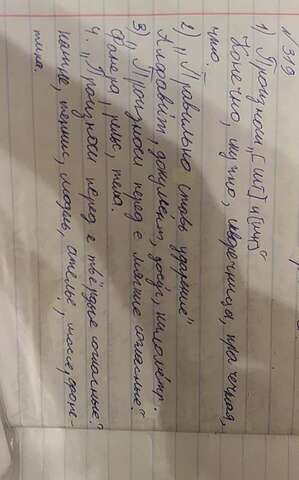 № 319
1) Произноси „[шт] и [шн]"
Конечно, скучно, скворечница, прачечная,
что.
2) „Правильно ставь ударение"
Алфавит, документ, досуг, километр.
3) „Произноси перед е мягкие согласные?
Фанера, рельс, тема.
4. „Произноси перед е твёрдые согласные?
кашне, теннис, модель, ателье, шоссе,
тина.